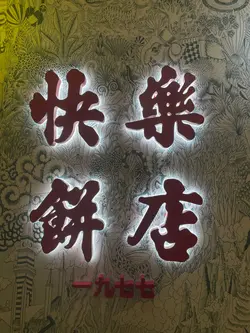 快樂
餅店
一九七七